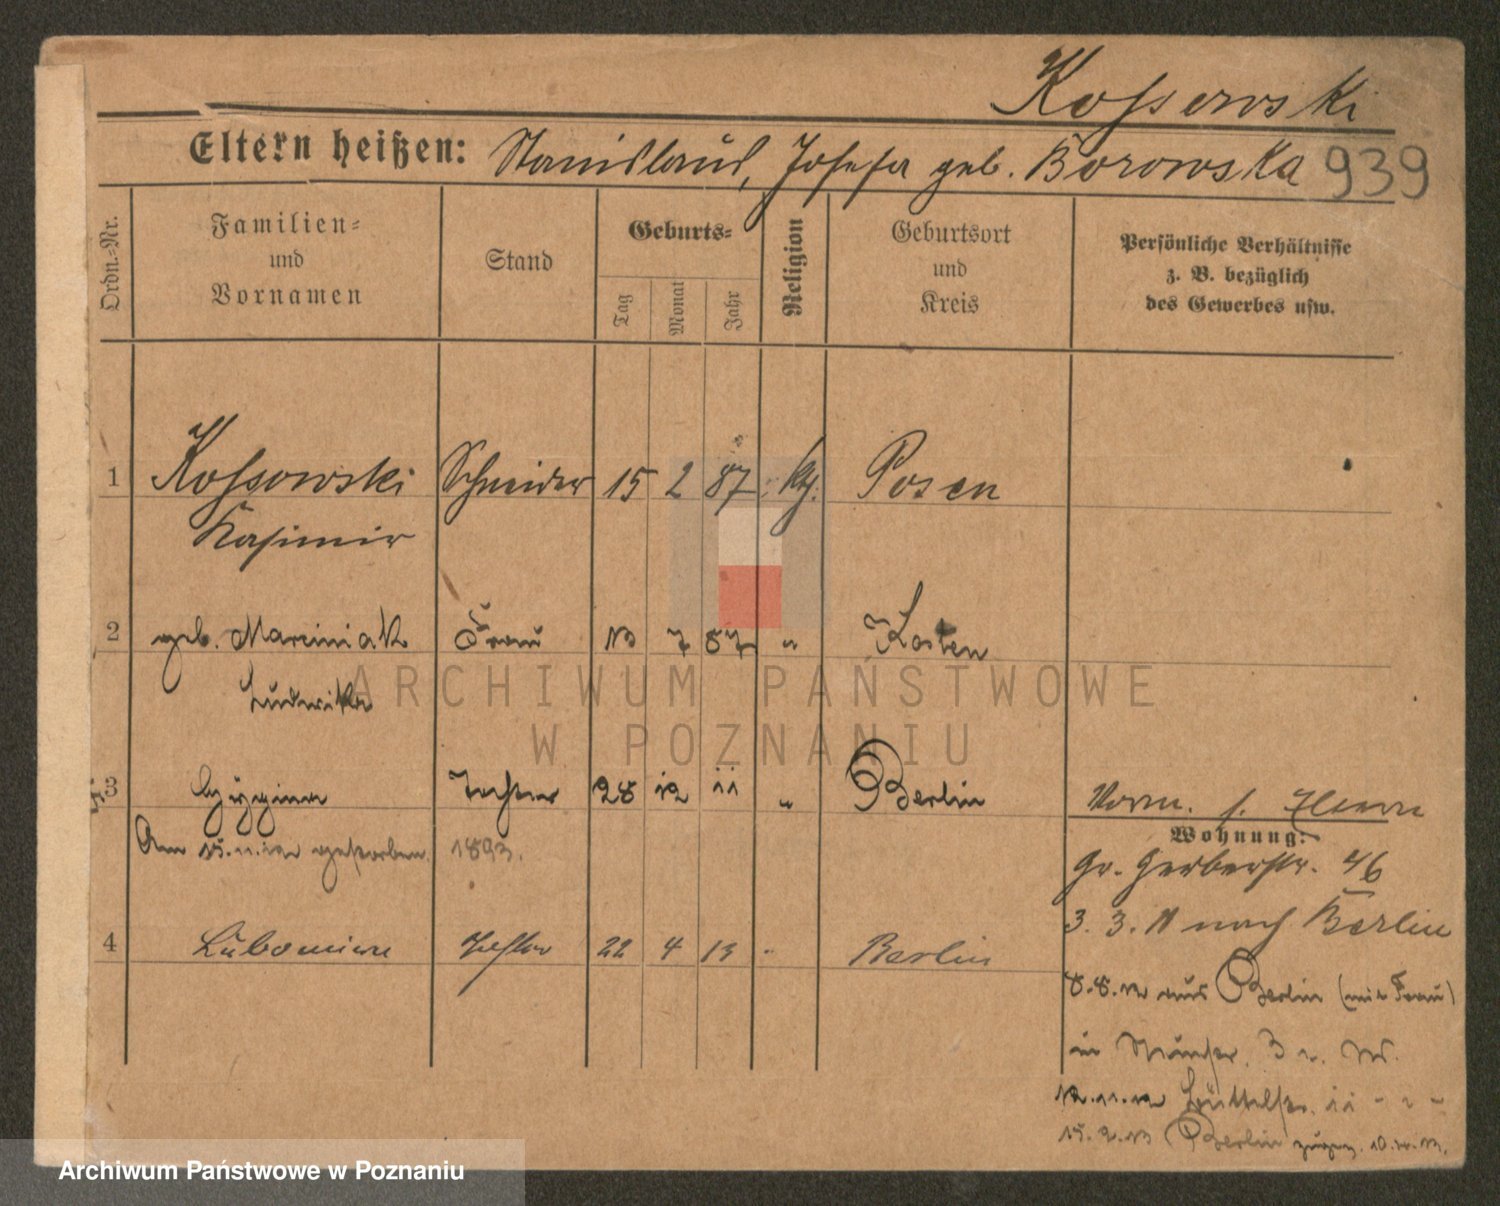 Kossowski
Eltern heißen: Stanislaus, Josefa geb. Borowska 939
Ordn.-Nr.
Familien-
und
Vornamen
Stand
Geburts-
Tag
Monat
Jahr
Religion
Geburtsort
und
Kreis
Persönliche Verhältnisse
z. B. bezüglich
des Gewerbes usw.
1 Kossowski Schneider 15 2 87 kth. Posen
Kasimir
2 geb. Marciniak Frau 13 7 87 " Kosten
Ludwika
3 Tochter 28 12 11 " Berlin
Am 15.11.12 gestorben. 1893.
4 Tochter 22 4 13 Berlin
Vorm. s.
Wohnung:
Gr. Gerberstr. 46
3. 3. 11 nach Berlin
8.8.12 aus Berlin (mit Frau)
in
12.11.12 11
15.2.13 Berlin
ARCHIWUM PAŃSTWOWE
W POZNANIU
Archiwum Państwowe w Poznaniu